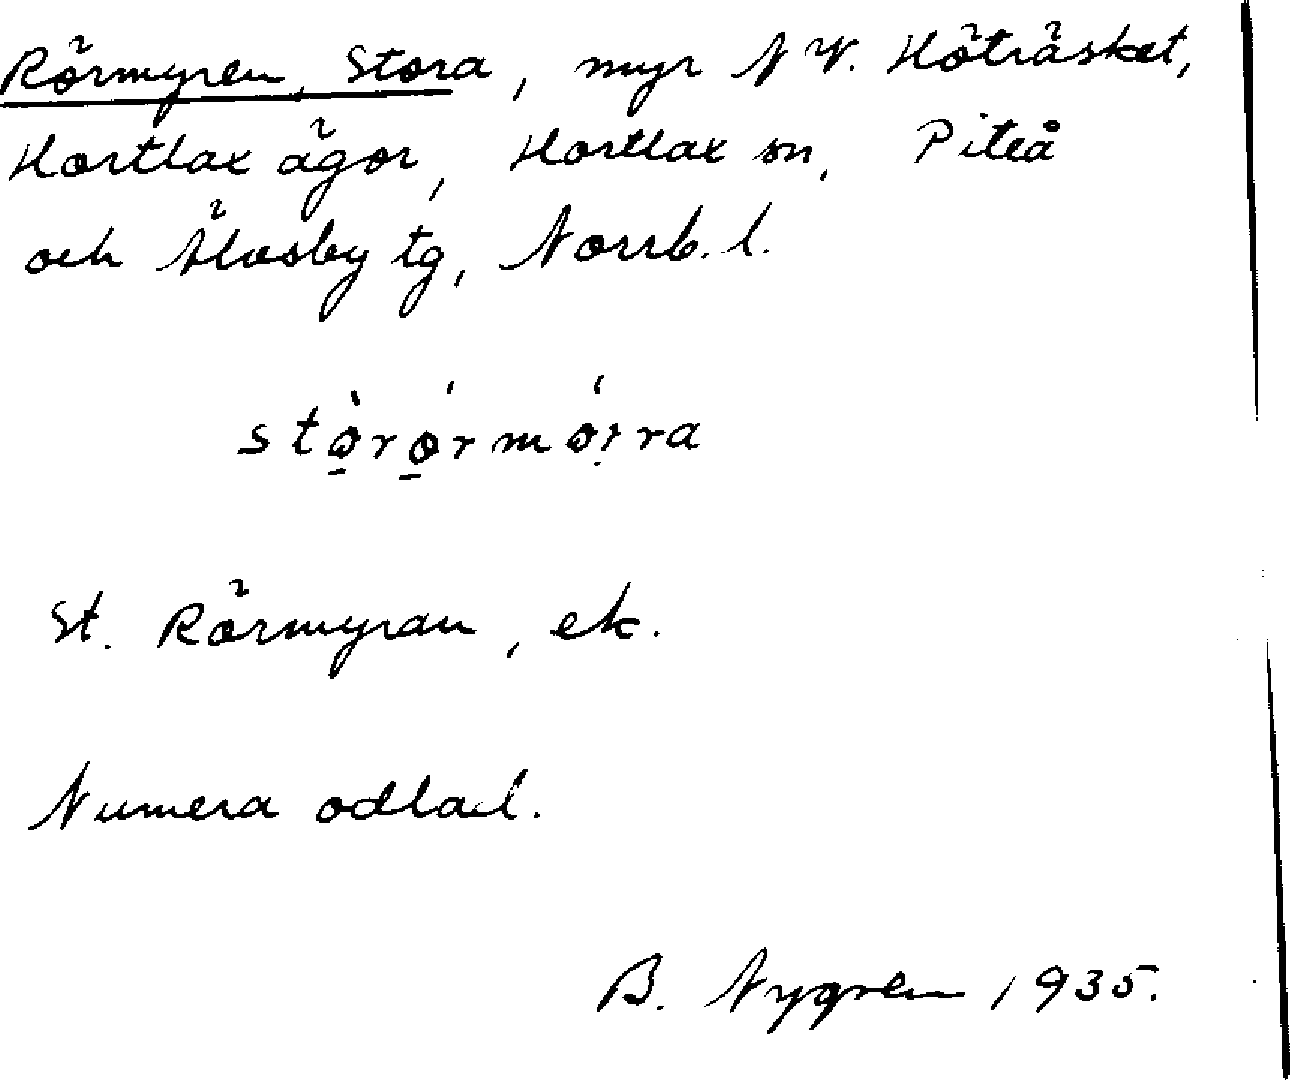 Rörmyren, Stora, myr N V. Höträsket,
Hortlax ägor, Hortlax sn, Piteå
och Älvsby tg, Norrb. l.
St. Rörmyran, ek.
Numera odlad.
B. Nygren 1935.